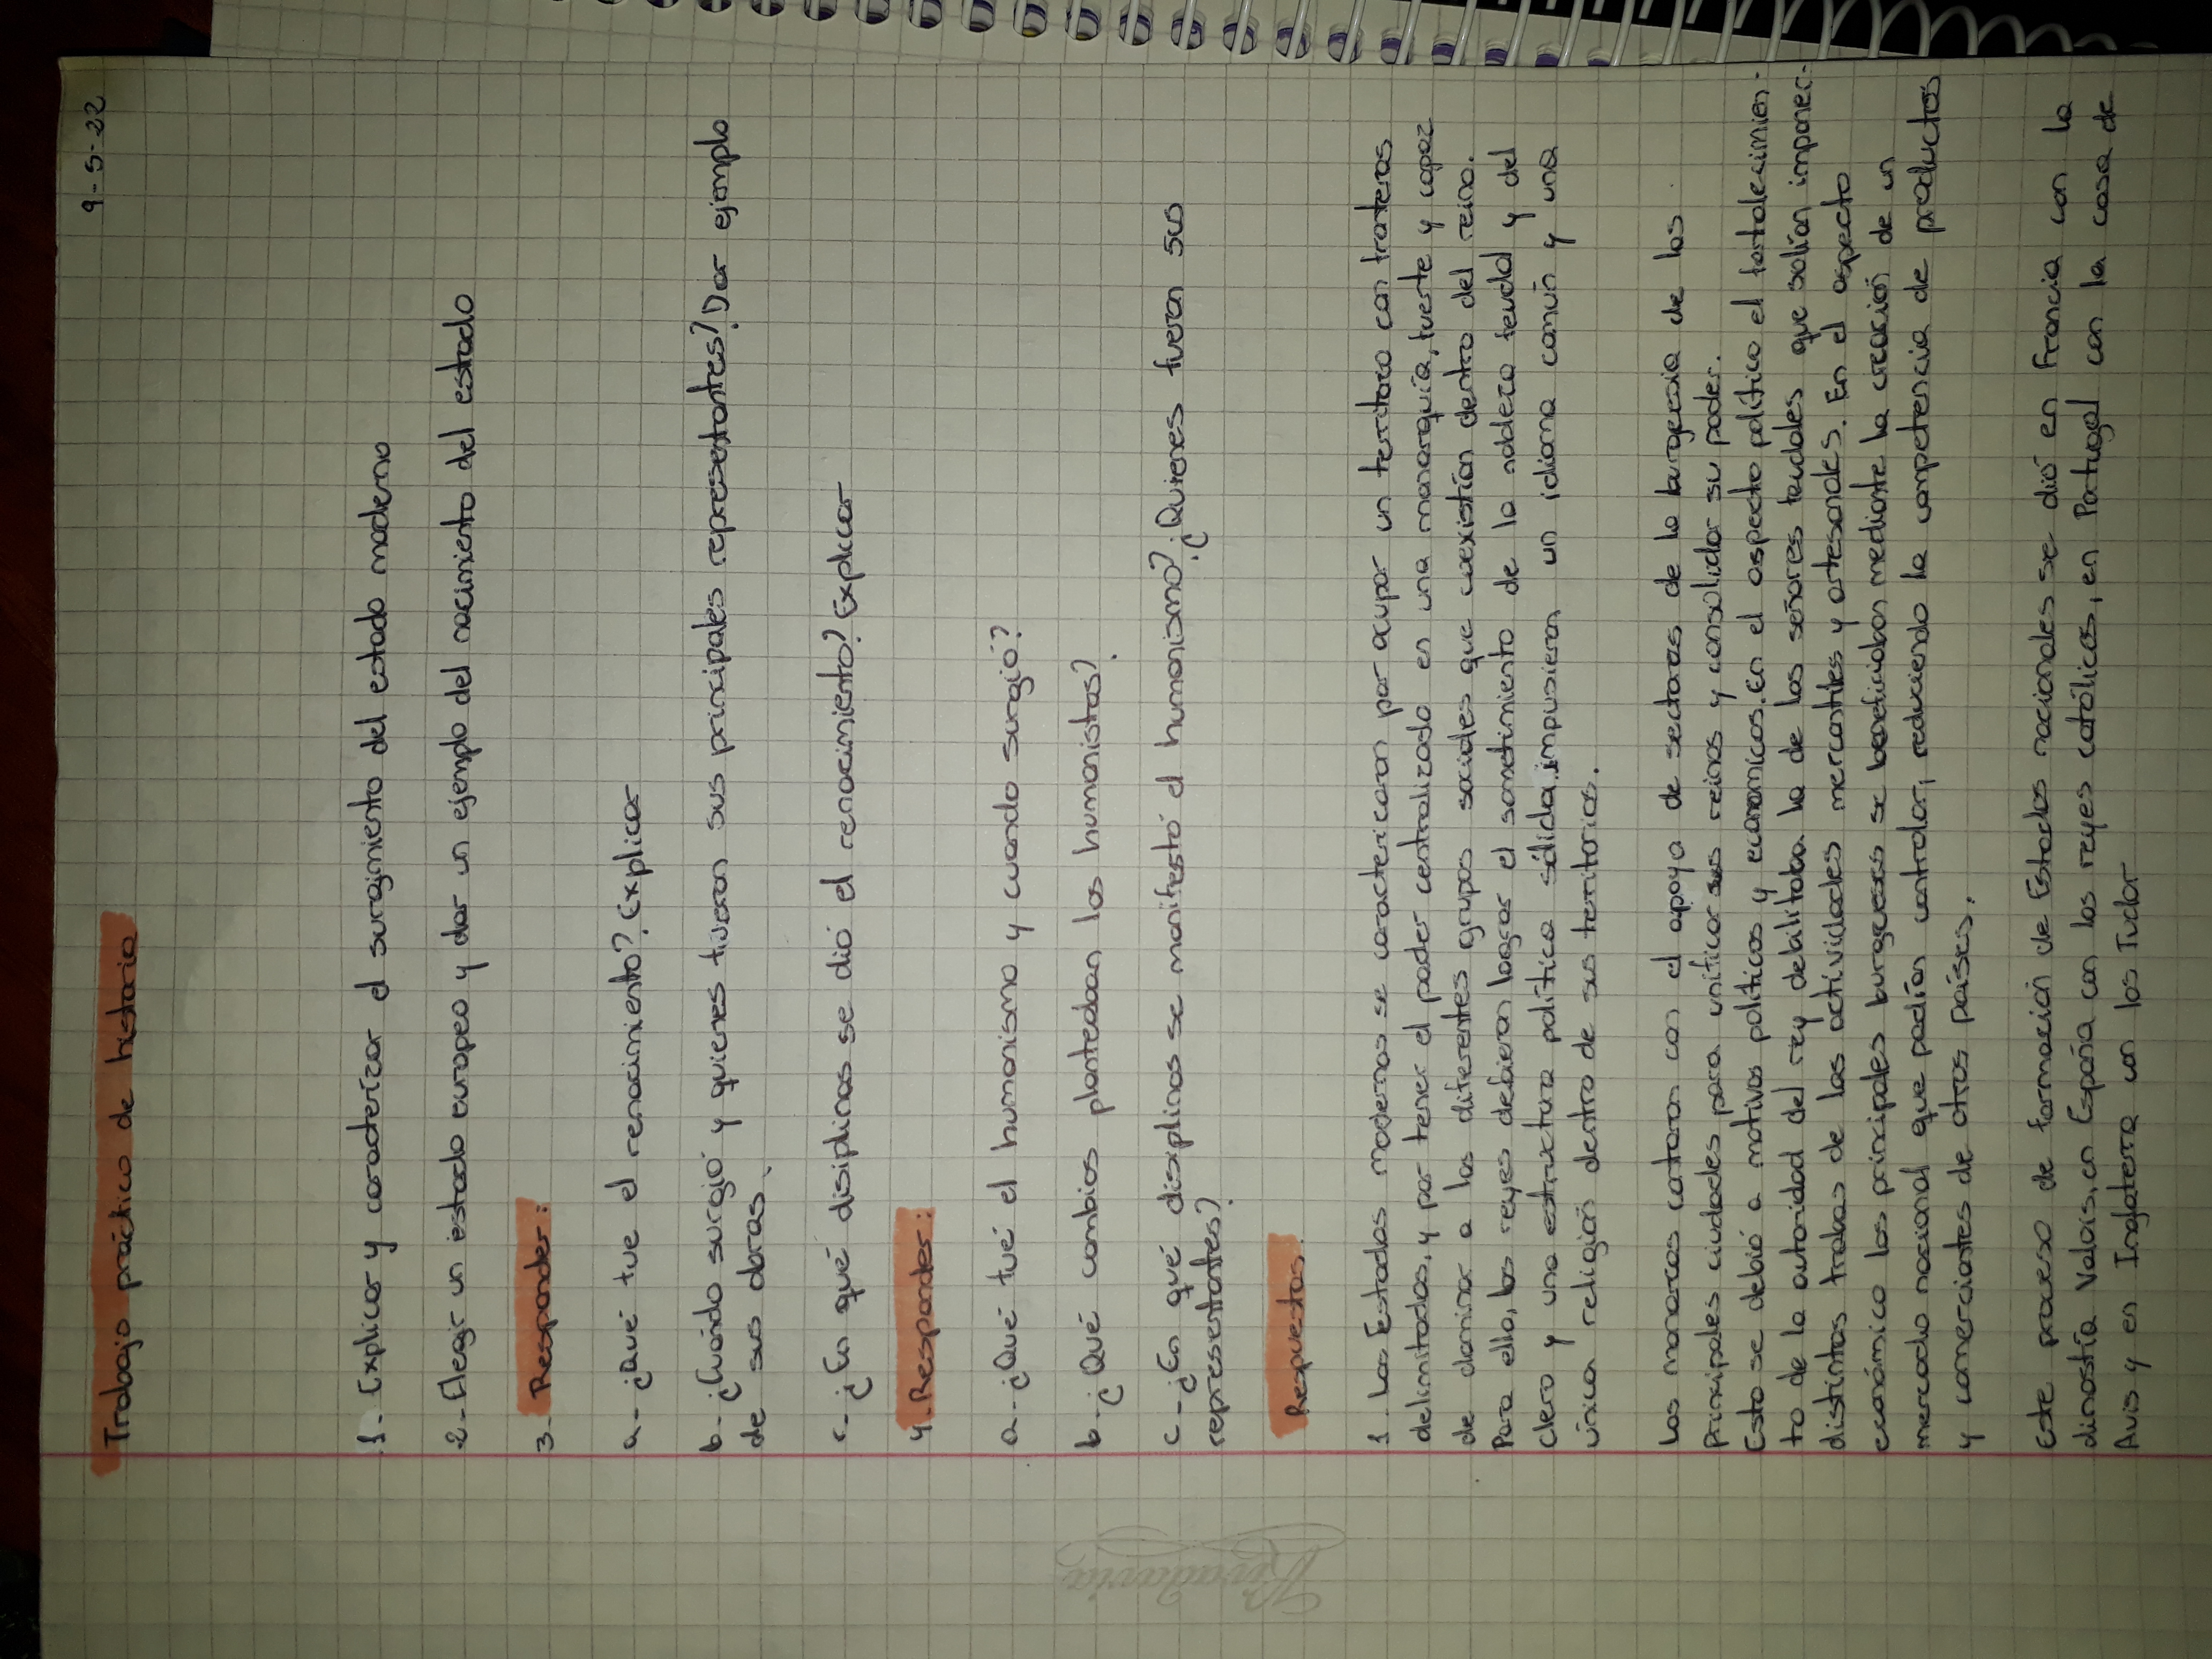 9-5-22
Trabajo práctico de historia
1- Explicar y caracterizar el surgimiento del estado moderno
2- Elegir un estado europeo y dar un ejemplo del nacimiento del estado
3- Responder:
a- ¿Qué fue el renacimiento? Explicar
b- ¿Cuándo surgió y quienes fueron sus principales representantes? Dar ejemplo
de sus obras.
c- ¿En qué disiplinas se dió el renacimiento? Explicar
4- Responder:
a- ¿Qué fué el humanismo y cuando surgió?
b- ¿Qué cambios planteaban los humanistas?
c- ¿En qué disiplinas se manifestó el humanismo? ¿Quienes fueron sus
representantes?
Respuestas
1- Los Estados modernos se caracterizaron por ocupar un territorio con fronteras
delimitadas, y por tener el poder centralizado en una monarquía, fuerte y capaz
de dominar a los diferentes grupos sociales que coexistían dentro del reino.
Para ello, los reyes debieron lograr el sometimiento de la nobleza feudal y del
clero y una estructura política sólida, impusieron un idioma común y una
única religión dentro de sus territorios.
Los monarcas contaron con el apoyo de sectores de la burgesia de las
principales ciudades para unificar sus reinos y consolidar su poder.
Esto se debió a motivos políticos y económicos. En el aspecto político el fortalecimien-
to de la autoridad del rey debilitaba la de los señores feudales que solían imponer
distintas trabas de las actividades mercantiles y artesanales. En el aspecto
económico los principales burgueses se beneficiaban mediante la creación de un
mercado nacional que podían controlar, reduciendo la competencia de productos
y comerciantes de otros países.
Este proceso de formación de Estados nacionales se dió en Francia con la
dinastía Valois, en España con los reyes católicos, en Portugal con la casa de
Avis y en Inglaterra con los Tudor
Rivadavia